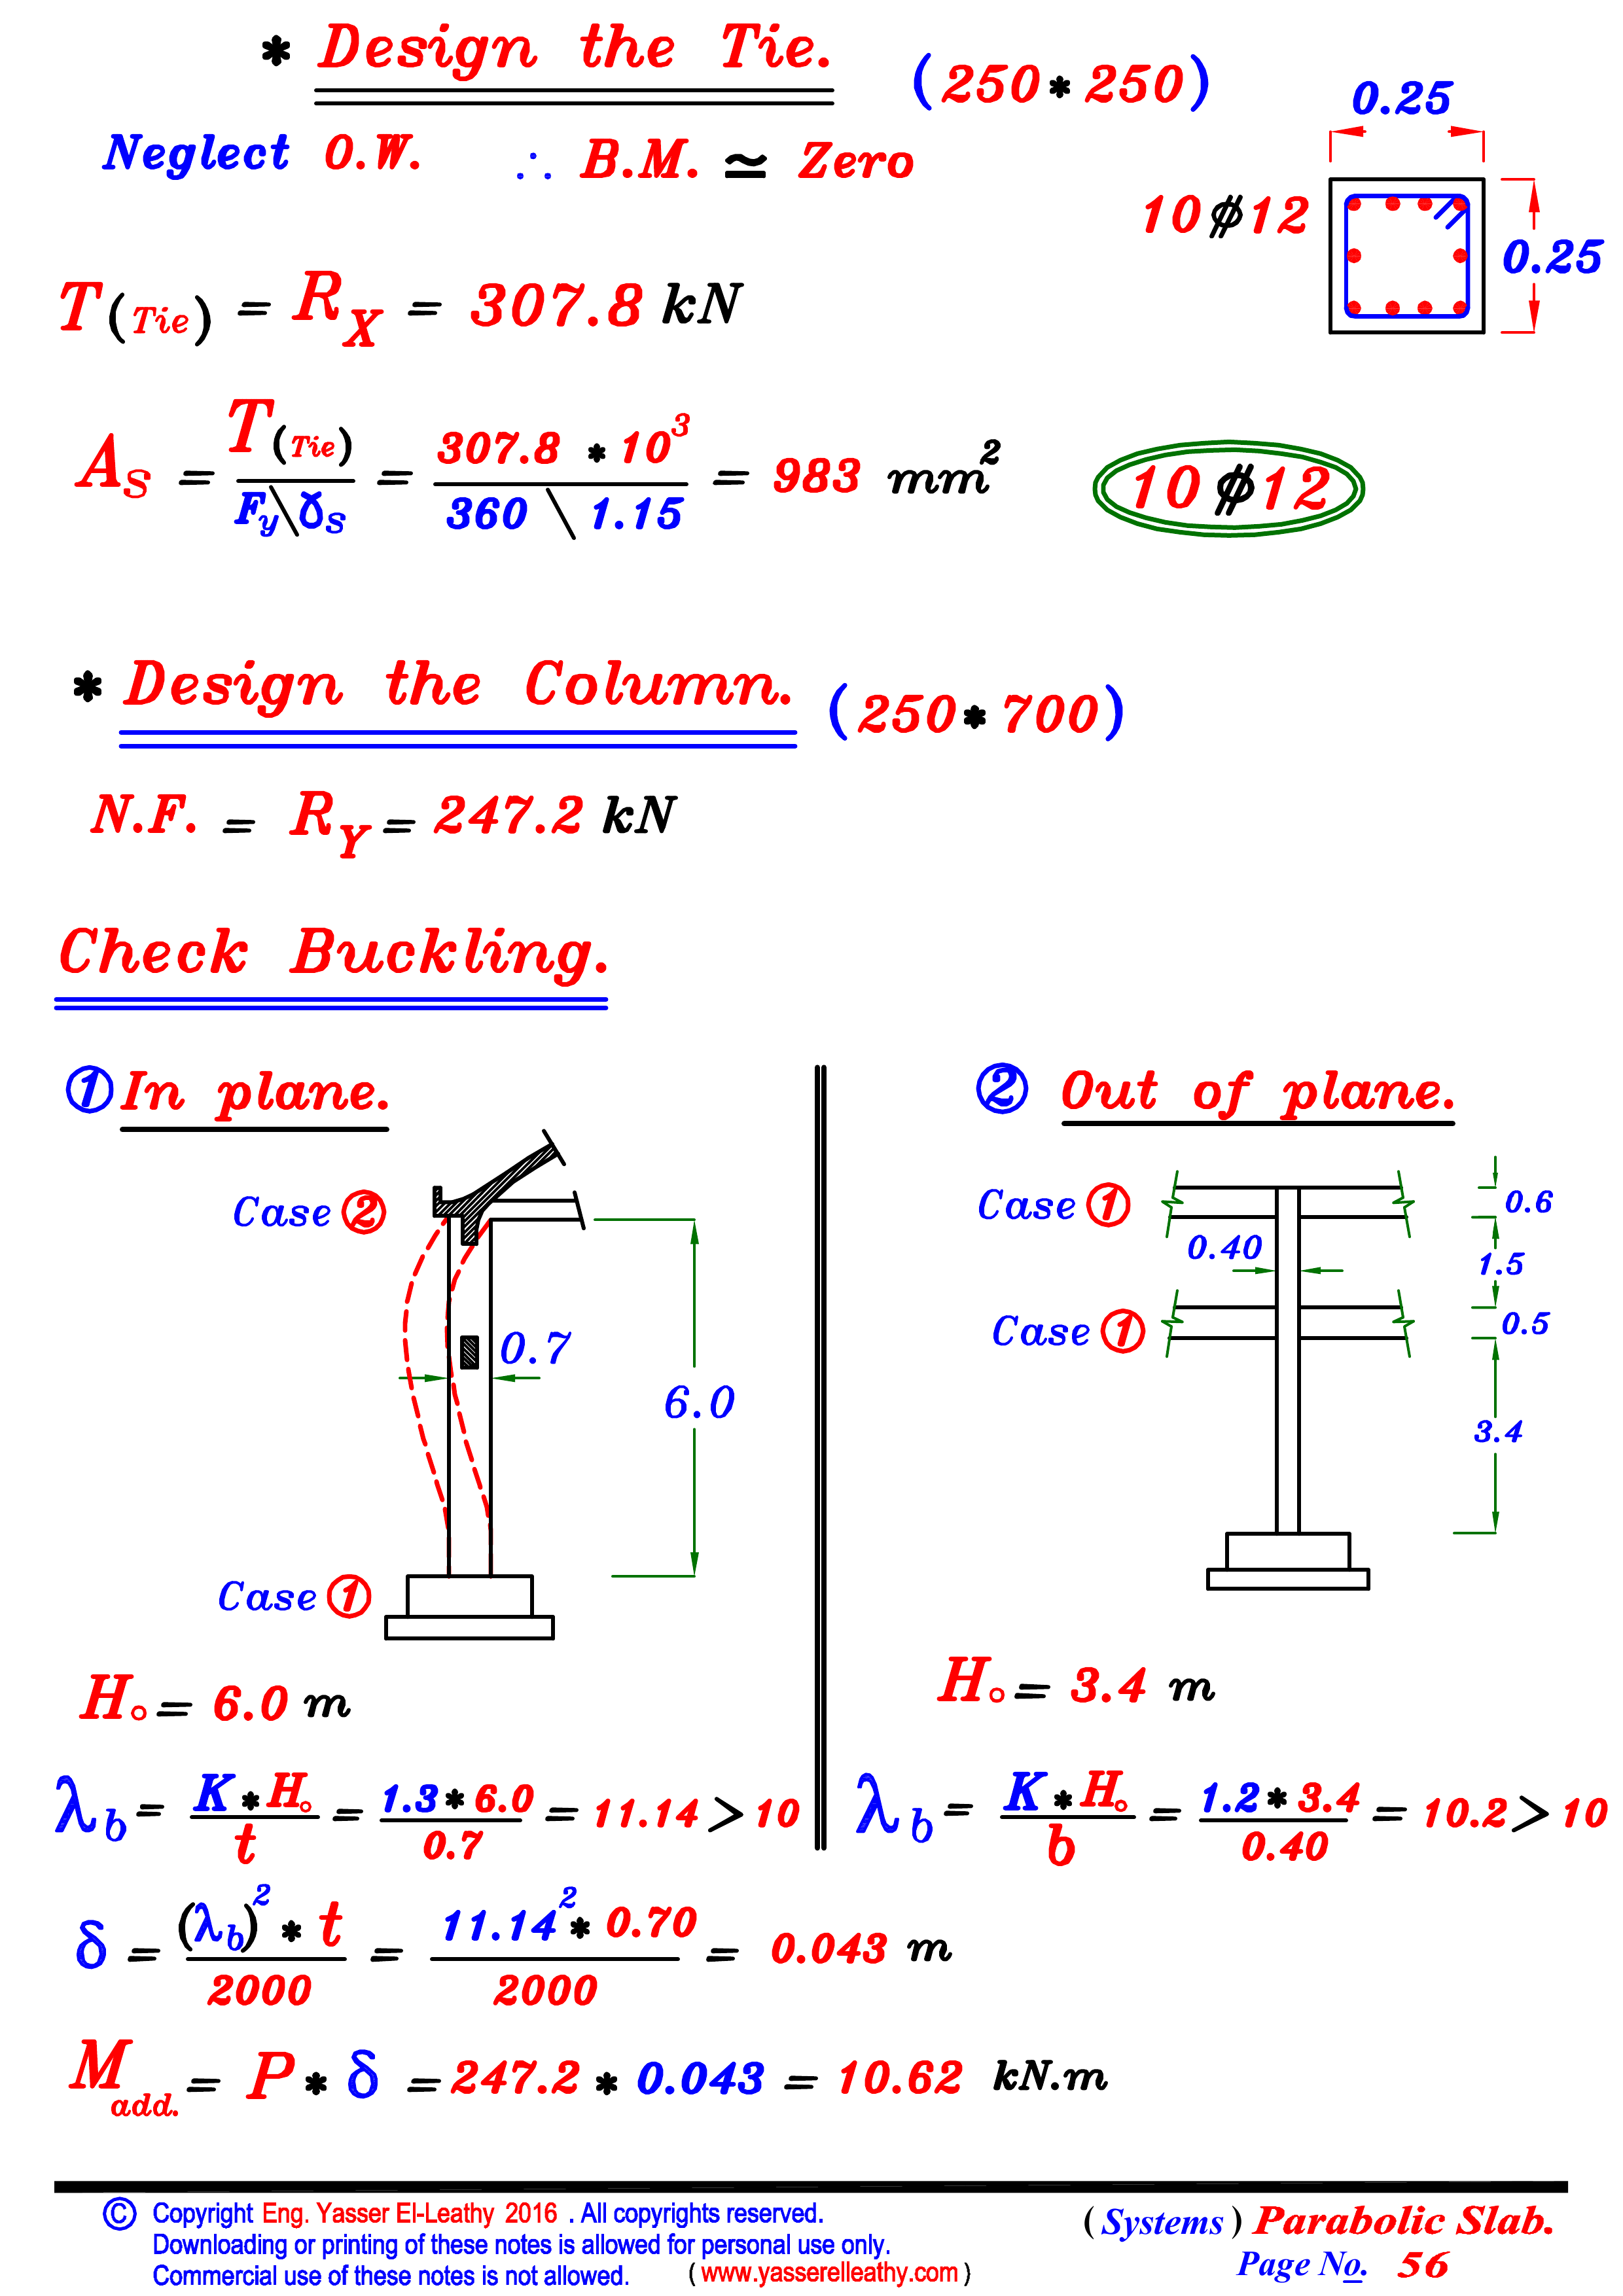 * Design the Tie. (250*250)
0.25
Neglect O.W. ∴ B.M. ≃ Zero
10⌀12
0.25
T(Tie) = RX = 307.8 kN
AS = T(Tie) / Fy\γS = 307.8 * 10³ / 360 \ 1.15 = 983 mm² 10⌀12
* Design the Column. (250*700)
N.F. = RY = 247.2 kN
Check Buckling.
① In plane.
Case ②
0.7
6.0
Case ①
H○ = 6.0 m
λb = K*H○ / t = 1.3*6.0 / 0.7 = 11.14 > 10
② Out of plane.
Case ① 0.6
0.40 1.5
Case ① 0.5
3.4
H○ = 3.4 m
λb = K*H○ / b = 1.2*3.4 / 0.40 = 10.2 > 10
δ = (λb)² * t / 2000 = 11.14² * 0.70 / 2000 = 0.043 m
Madd. = P * δ = 247.2 * 0.043 = 10.62 kN.m
© Copyright Eng. Yasser El-Leathy 2016 . All copyrights reserved.
Downloading or printing of these notes is allowed for personal use only.
Commercial use of these notes is not allowed. ( www.yasserelleathy.com )
( Systems ) Parabolic Slab.
Page No. 56